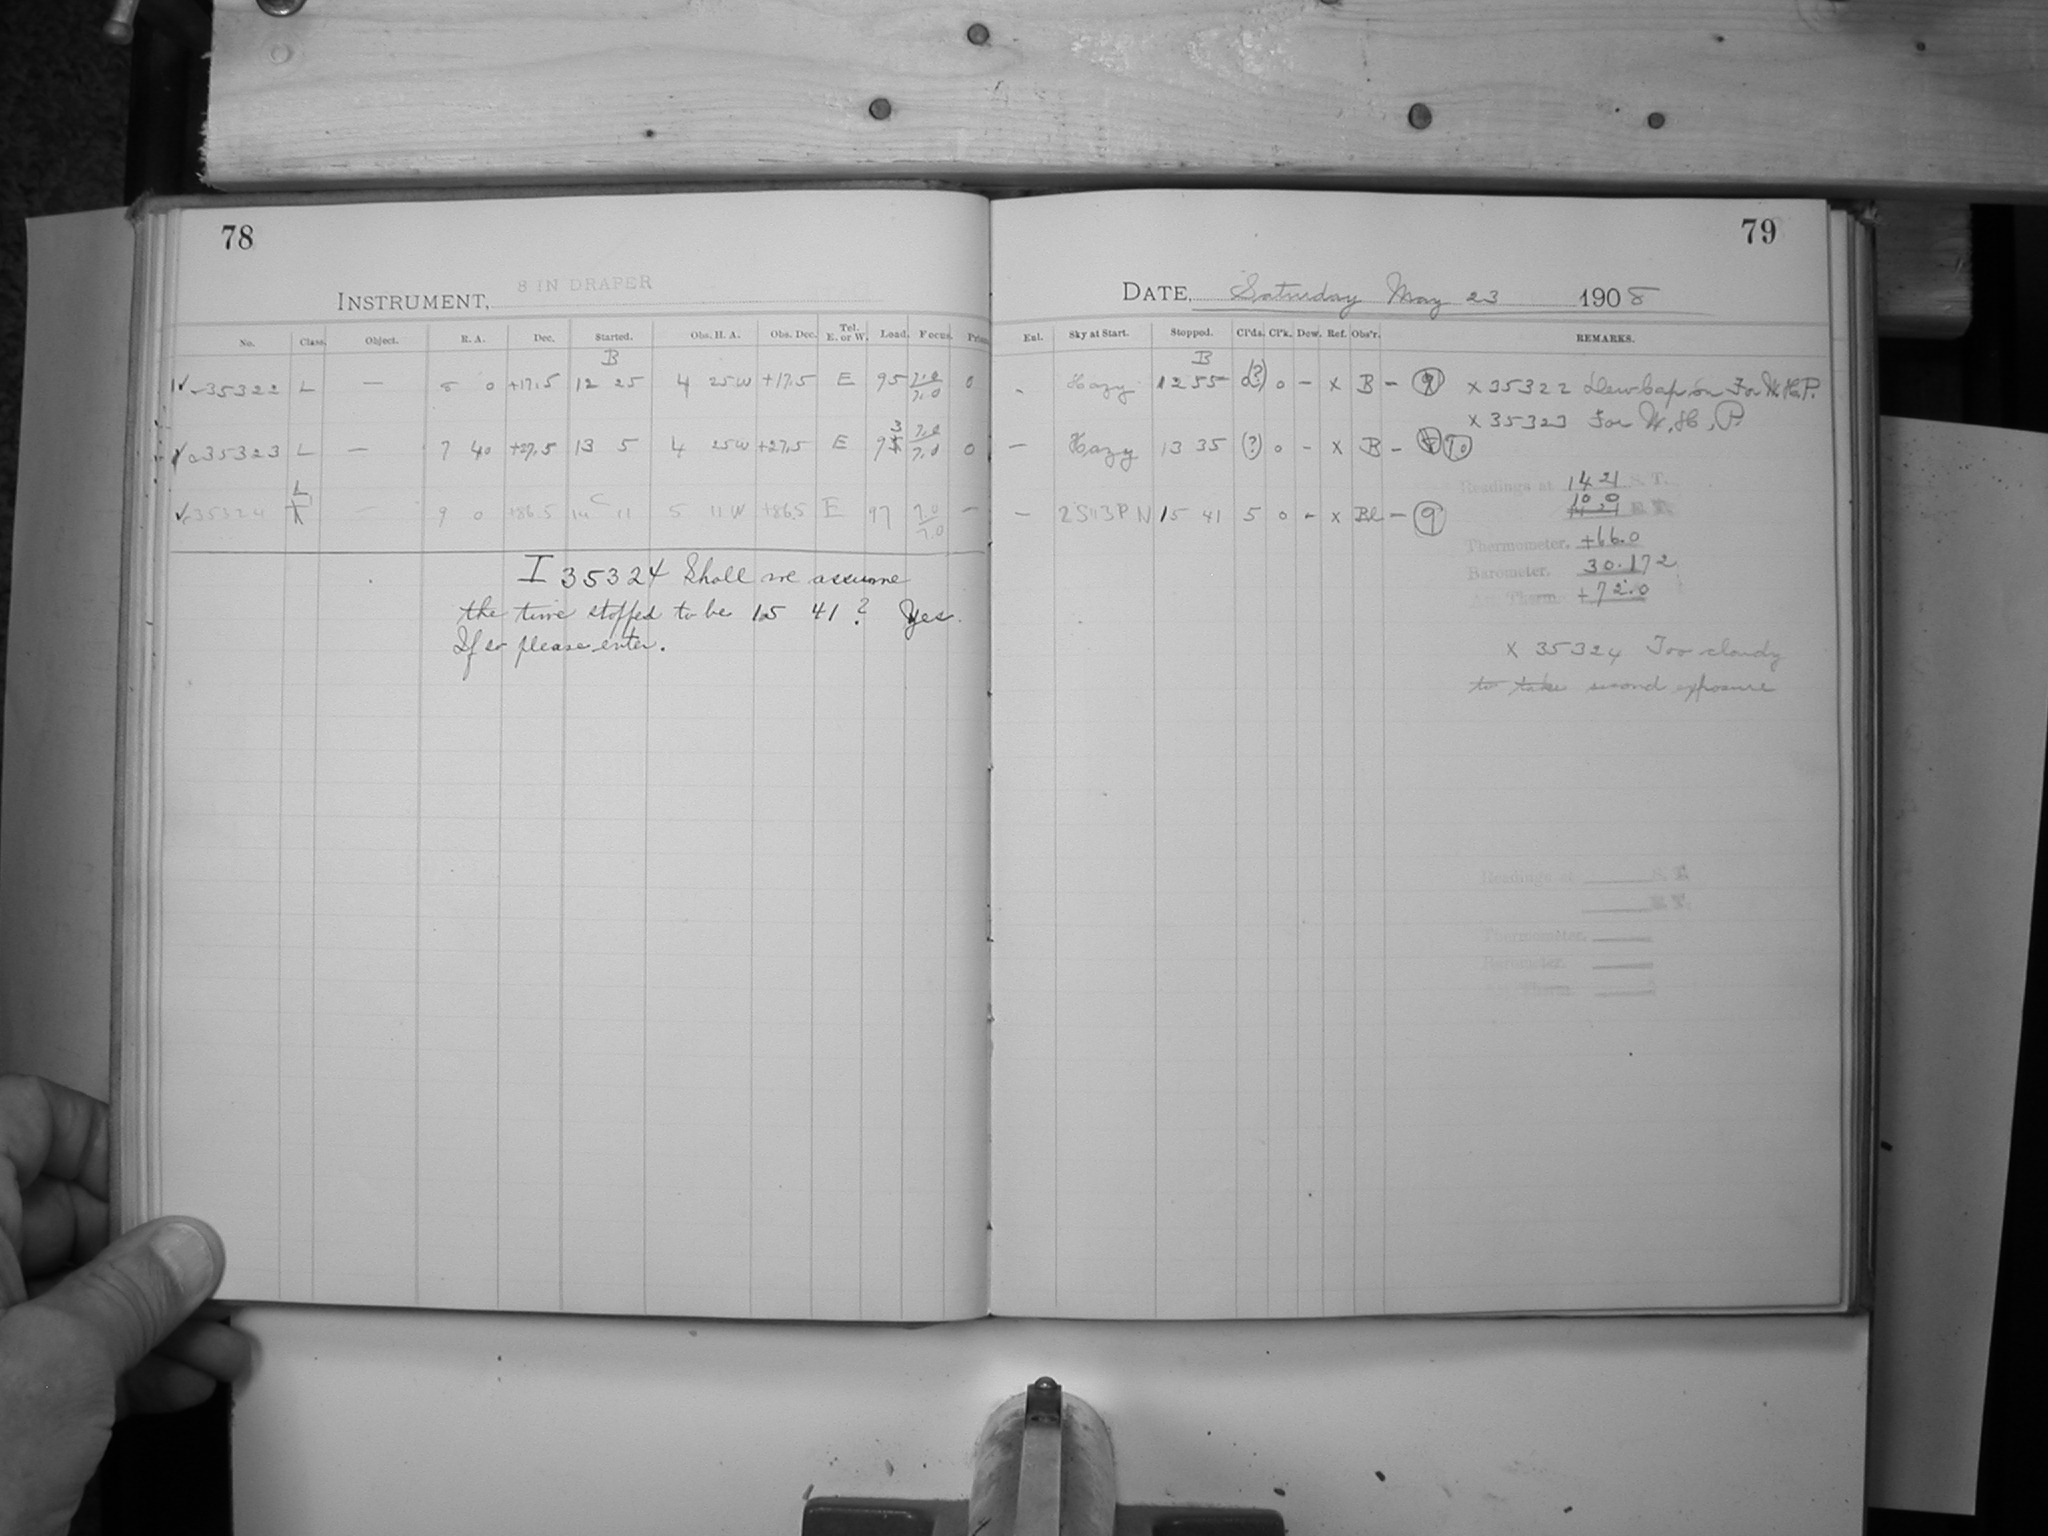 78
INSTRUMENT, 8 IN DRAPER
No. Class. Object. R. A. Dec. Started. Obs. H. A. Obs. Dec. Tel. E. or W. Load. Focus.
B
35322 L — 8 0 +17.5 12 25 4 25W +17.5 E 95 7.0 7.0 0
35323 L — 7 40 +27.5 13 5 4 25W +27.5 E 93 7.0 7.0 0
L
35324 — 9 0 +86.5 14 11 5 11W +86.5 E 97 7.0 7.0 —
I 35324 Shall we assume
the time stopped to be 15 41? Yes.
If so please enter.
79
DATE, Saturday May 23 1908
Enl. Sky at Start. Stopped. Cl'ds. Cl'k. Dew. Ref. Obs'r. REMARKS.
B
- Hazy 12 55 (?) 0 - x B - 9 x 35322 Dew Cap on For W.H.P.
x 35323 For W.H.P
— Hazy 13 35 (?) 0 - x B - 10
— 2S113PN 15 41 5 0 - x Bl - 9
Readings at 14 21 S. T.
10 0 E. T.
Thermometer. +66.0
Barometer. 30.172
Att. Therm. +72.0
x 35324 Too cloudy
to take second exposure
Readings at S. T.
E. T.
Thermometer.
Barometer.
Att. Therm.